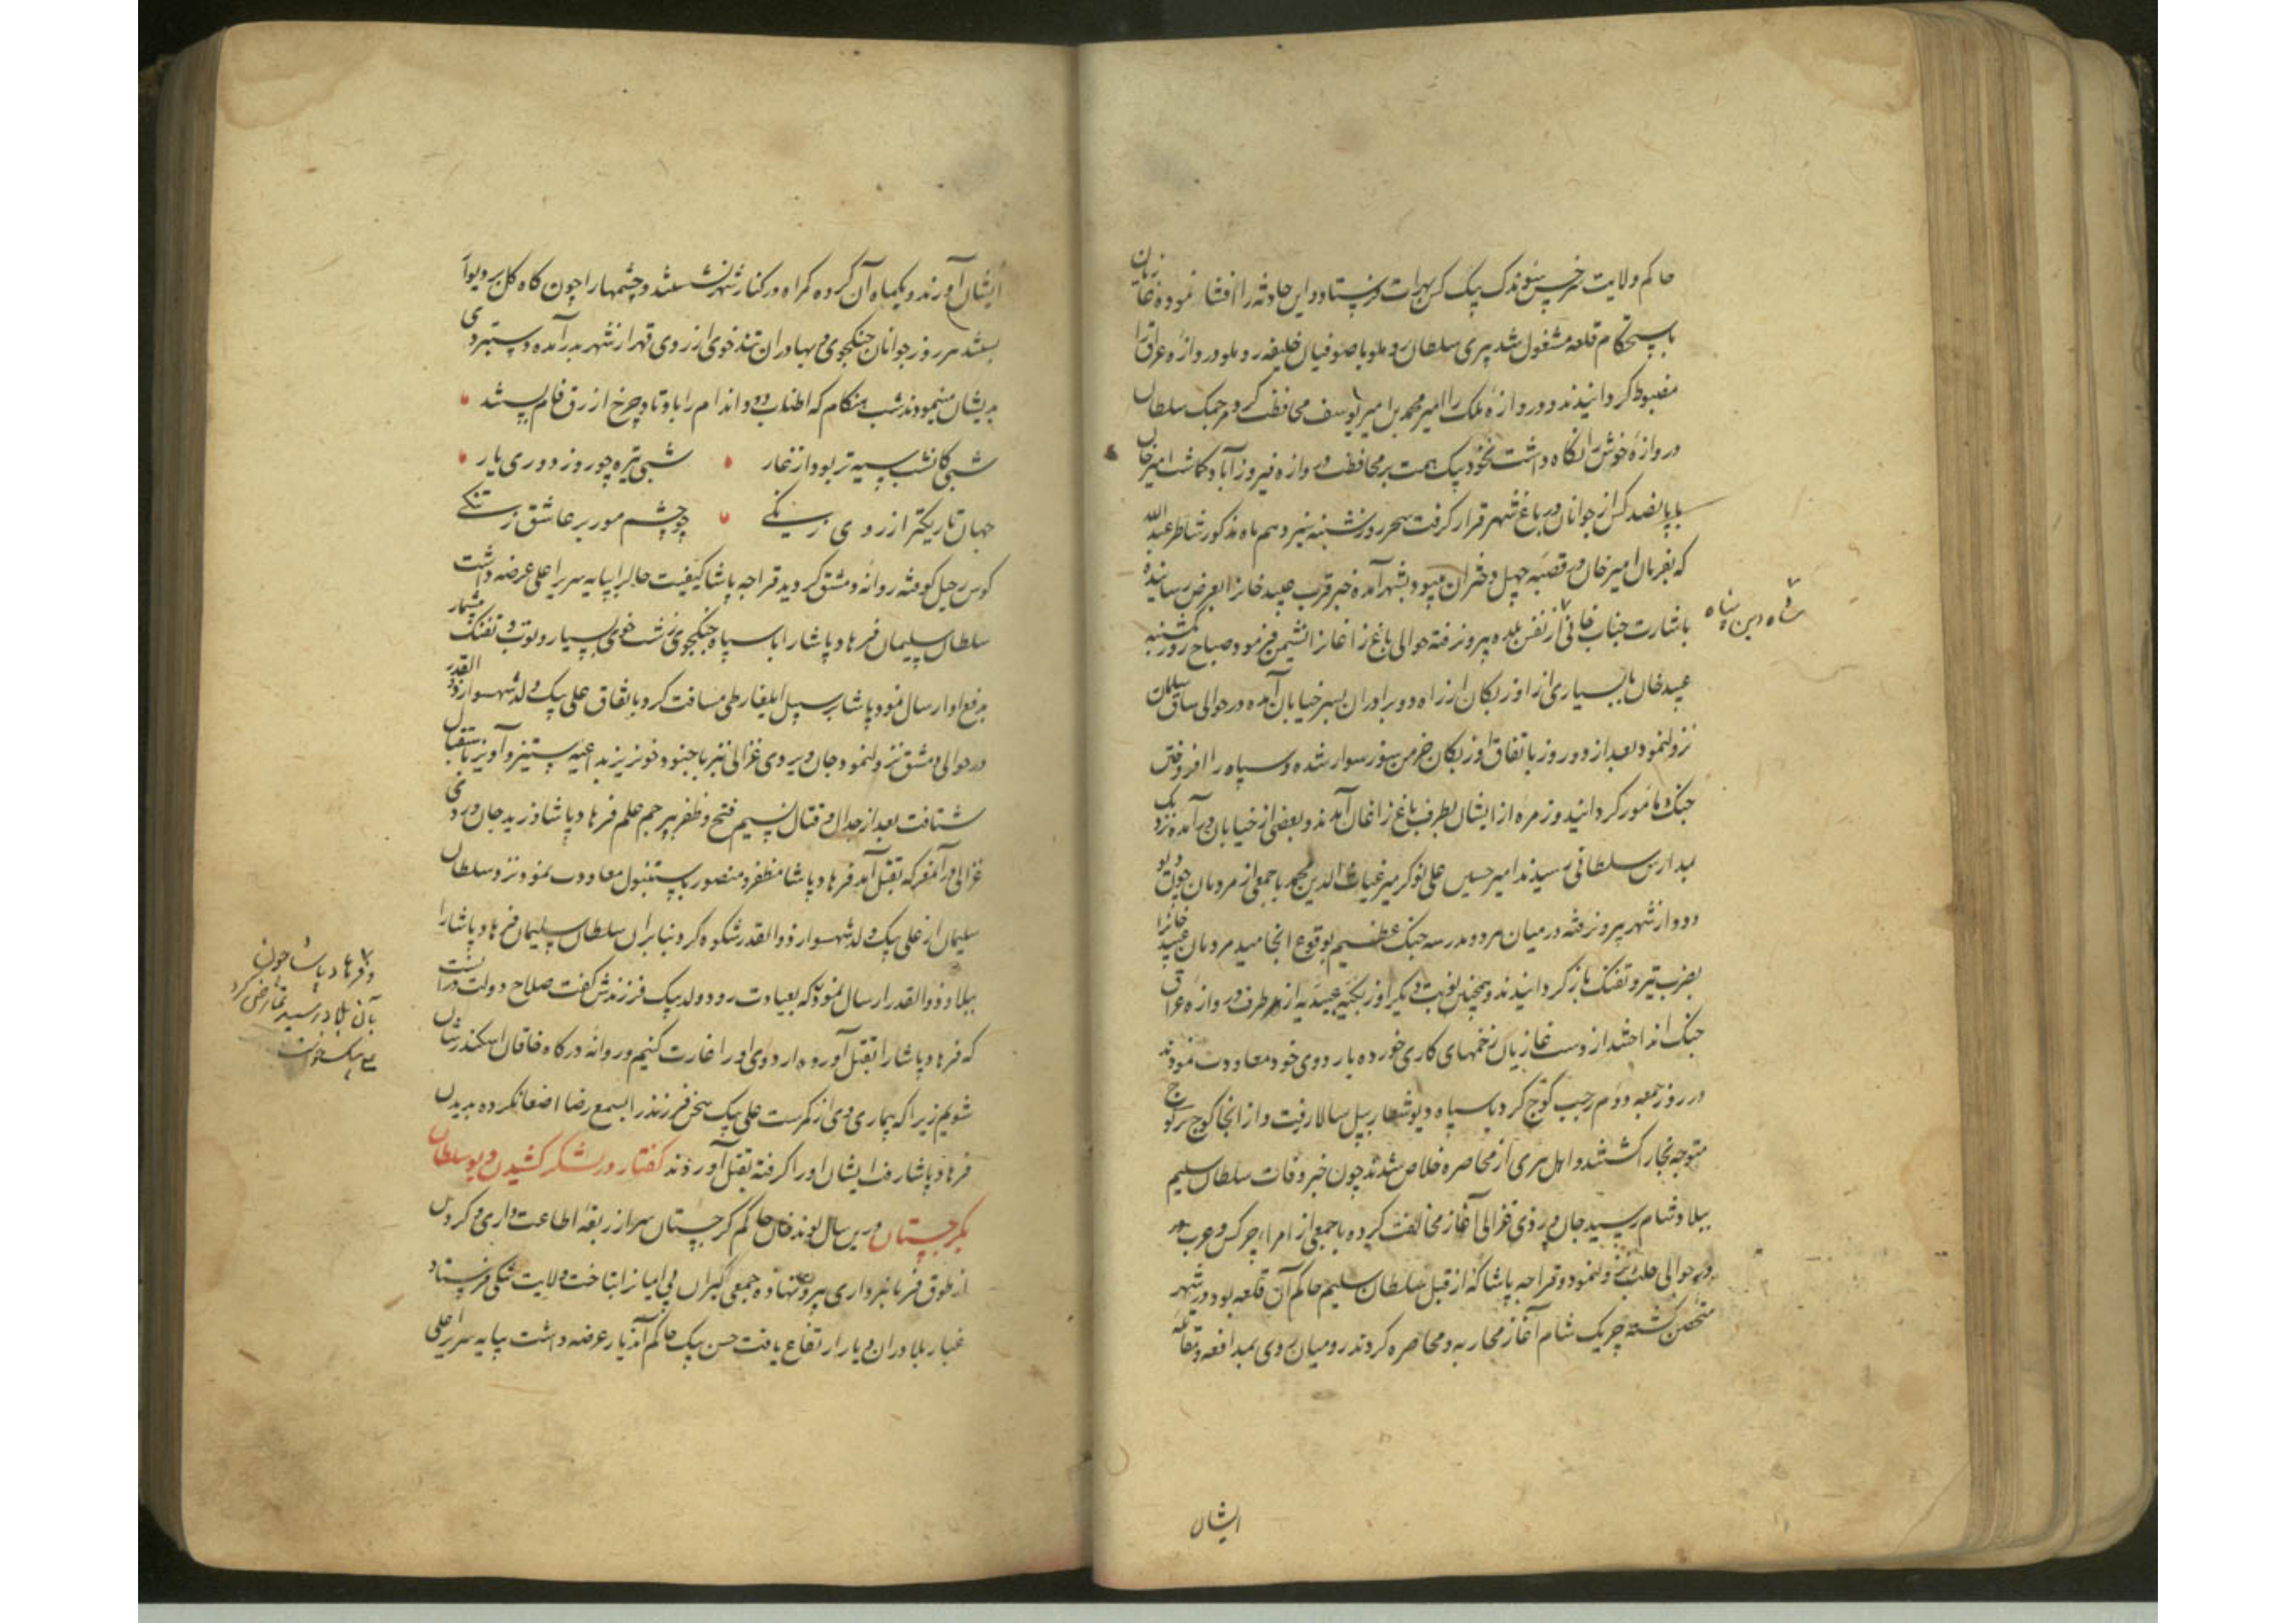 حاکم ولایت سرخس بیوندک بیک کس بهرات فرستاد و این حادثه را افشا نمود غازیان
باستحکام قلعه مشغول شد پیری سلطان روملو با صوفیان خلیفه روملو دروازه عراق را
مضبوط گردانیدند و دروازه ملک را امیر محمد بن امیر یوسف محافظت کرد مرجمک سلطان
دروازه خوش را نگاه داشت بخود بیک همت بر محافظت دروازه فیروزآباد گماشت امیرخان
با پانصد کس از جوانان در باغ شهر قرار گرفت سحر روز شنبه سیزدهم ماه مذکور شاطر عبدالله
که بفرمان امیرخان در قصبه چهل دختران میبود بشهر آمده خبر قرب عبید خان را بعرض رسانیده
باشارت جناب خانی از نفس بلده بیرون رفته حوالی باغ زاغان را نشیمن فرمود و صباح روز یکشنبه
شاه دین پناه
عبید خان با بسیاری از اوزبکان از راه دو برادران بسر خیابان آمده در حوالی ساق سلمان
نزول نمود بعد از دو روز باتفاق اوزبکان خرمن سوز سوار شده و سپاه را افروختن
جنک مامور گردانید و زمره از ایشان بطرف باغ زاغان آمدند و بعضی از خیابان در آمده نزدیک
بمدارس سلطانی رسیدند امیر حسین علی نوکر میر غیاث الدین محمد با جمعی از مردمان چون دیو
و دد از شهر بیرون رفته در میان هر دو مدرسه جنک عظیم بوقوع انجامید مردمان عبید خانرا
بضرب تیر و تفنک باز گردانیدند و همچنین نوبت دیگر اوزبکیه عبیدیه از طرف دروازه عراق
جنک انداختند از دست غازیان زخمهای کاری خورده باردوی خود معاودت نمودند
در روز جمعه دوم رجب کوچ کرد با سپاه دیو شعار بپل سالار رفت و از انجا کوچ بر کوچ
متوجه بخارا گشتند و اهل هری از محاصره خلاص شدند چون خبر وفات سلطان سلیم
ببلاد شام رسید جان بردی غزالی آغاز مخالفت کرده با جمعی از امراء چرکس و عرب
در حوالی حلب نزول نمود و قراجه پاشا که از قبل سلطان سلیم حاکم آن قلعه بود در شهر
متحصن گشته چریک شام آغاز محاربه و محاصره کردند رومیان روی بمدافعه و مقاتله
ایشان
ایشان آوردند و یکماه آن گروه گمراه در کنار شهر نشستند و چشمها را چون کاه گل بر دیوار
بستند هر روز جوانان جنگجوی و بهادران تندخوی از روی قهر از شهر بدر آمده دستبردی
بدیشان مینمودند شب هنگام که اطناب دود اندام را باوتاد چرخ ازرق فام بستند
شبی کانشب سیه تر بود از غار شبی تیره چو روز دوری یار
جهان تاریکتر از روی زنگی چو چشم مور بر عاشق ز تنگی
کوس رحیل کوفته روانه دمشق گردید قراجه پاشا کیفیت حال را بپایه سریر اعلی عرضه داشت
سلطان سلیمان فرهاد پاشا را با سپاه جنگجوی زشت خوی بسیار و توپ و تفنک بیشمار
بدفع او ارسال نمود پاشا بر سبیل ایلغار طی مسافت کرد باتفاق علی بیک ولد شهسوار ذوالقدر
در حوالی دمشق نزول نمود و جان بردی غزالی نیز با جنود خونریز بداعیه ستیز و آویز باستقبال
شتافت بعد از جدال و قتال نسیم فتح و ظفر بپرچم علم فرهاد پاشا وزید جان بردی
غزالی در آن معرکه بقتل آمد فرهاد پاشا مظفر و منصور باستنبول معاودت نمود نزد سلطان
سلیمان از علی بیک ولد شهسوار ذوالقدر شکوه کرد بنابران سلطان سلیمان فرهاد پاشا را
ببلاد ذوالقدر ارسال نمود که بعیادت رود ولد بیک فرزندش گفت صلاح دولت در آنست
و فرهاد پاشا چون
بآن بلاد رسید تمارض کرد
که فرهاد پاشا را بقتل آورده اردوی او را غارت کنیم و روانه درگاه خاقان اسکندرشان
شویم زیرا که بیماری وی از مکرست علی بیک سخن فرزند را بسمع رضا اصغا نکرده بدیدن
فرهاد پاشا رفت ایشان او را گرفته بقتل آوردند گفتار در لشکر کشیدن دیو سلطان
بگرجستان درین سال لوند خان حاکم گرجستان سر از ربقه اطاعت داری و گردن
از طوق فرمانبرداری بیرون نهاده جمعی گبران بی ایمان را بتاخت ولایت شکی فرستاد
غبار بلا در آن دیار ارتفاع یافت حسن بیک حاکم آندیار عرضه داشت بپایه سریر اعلی